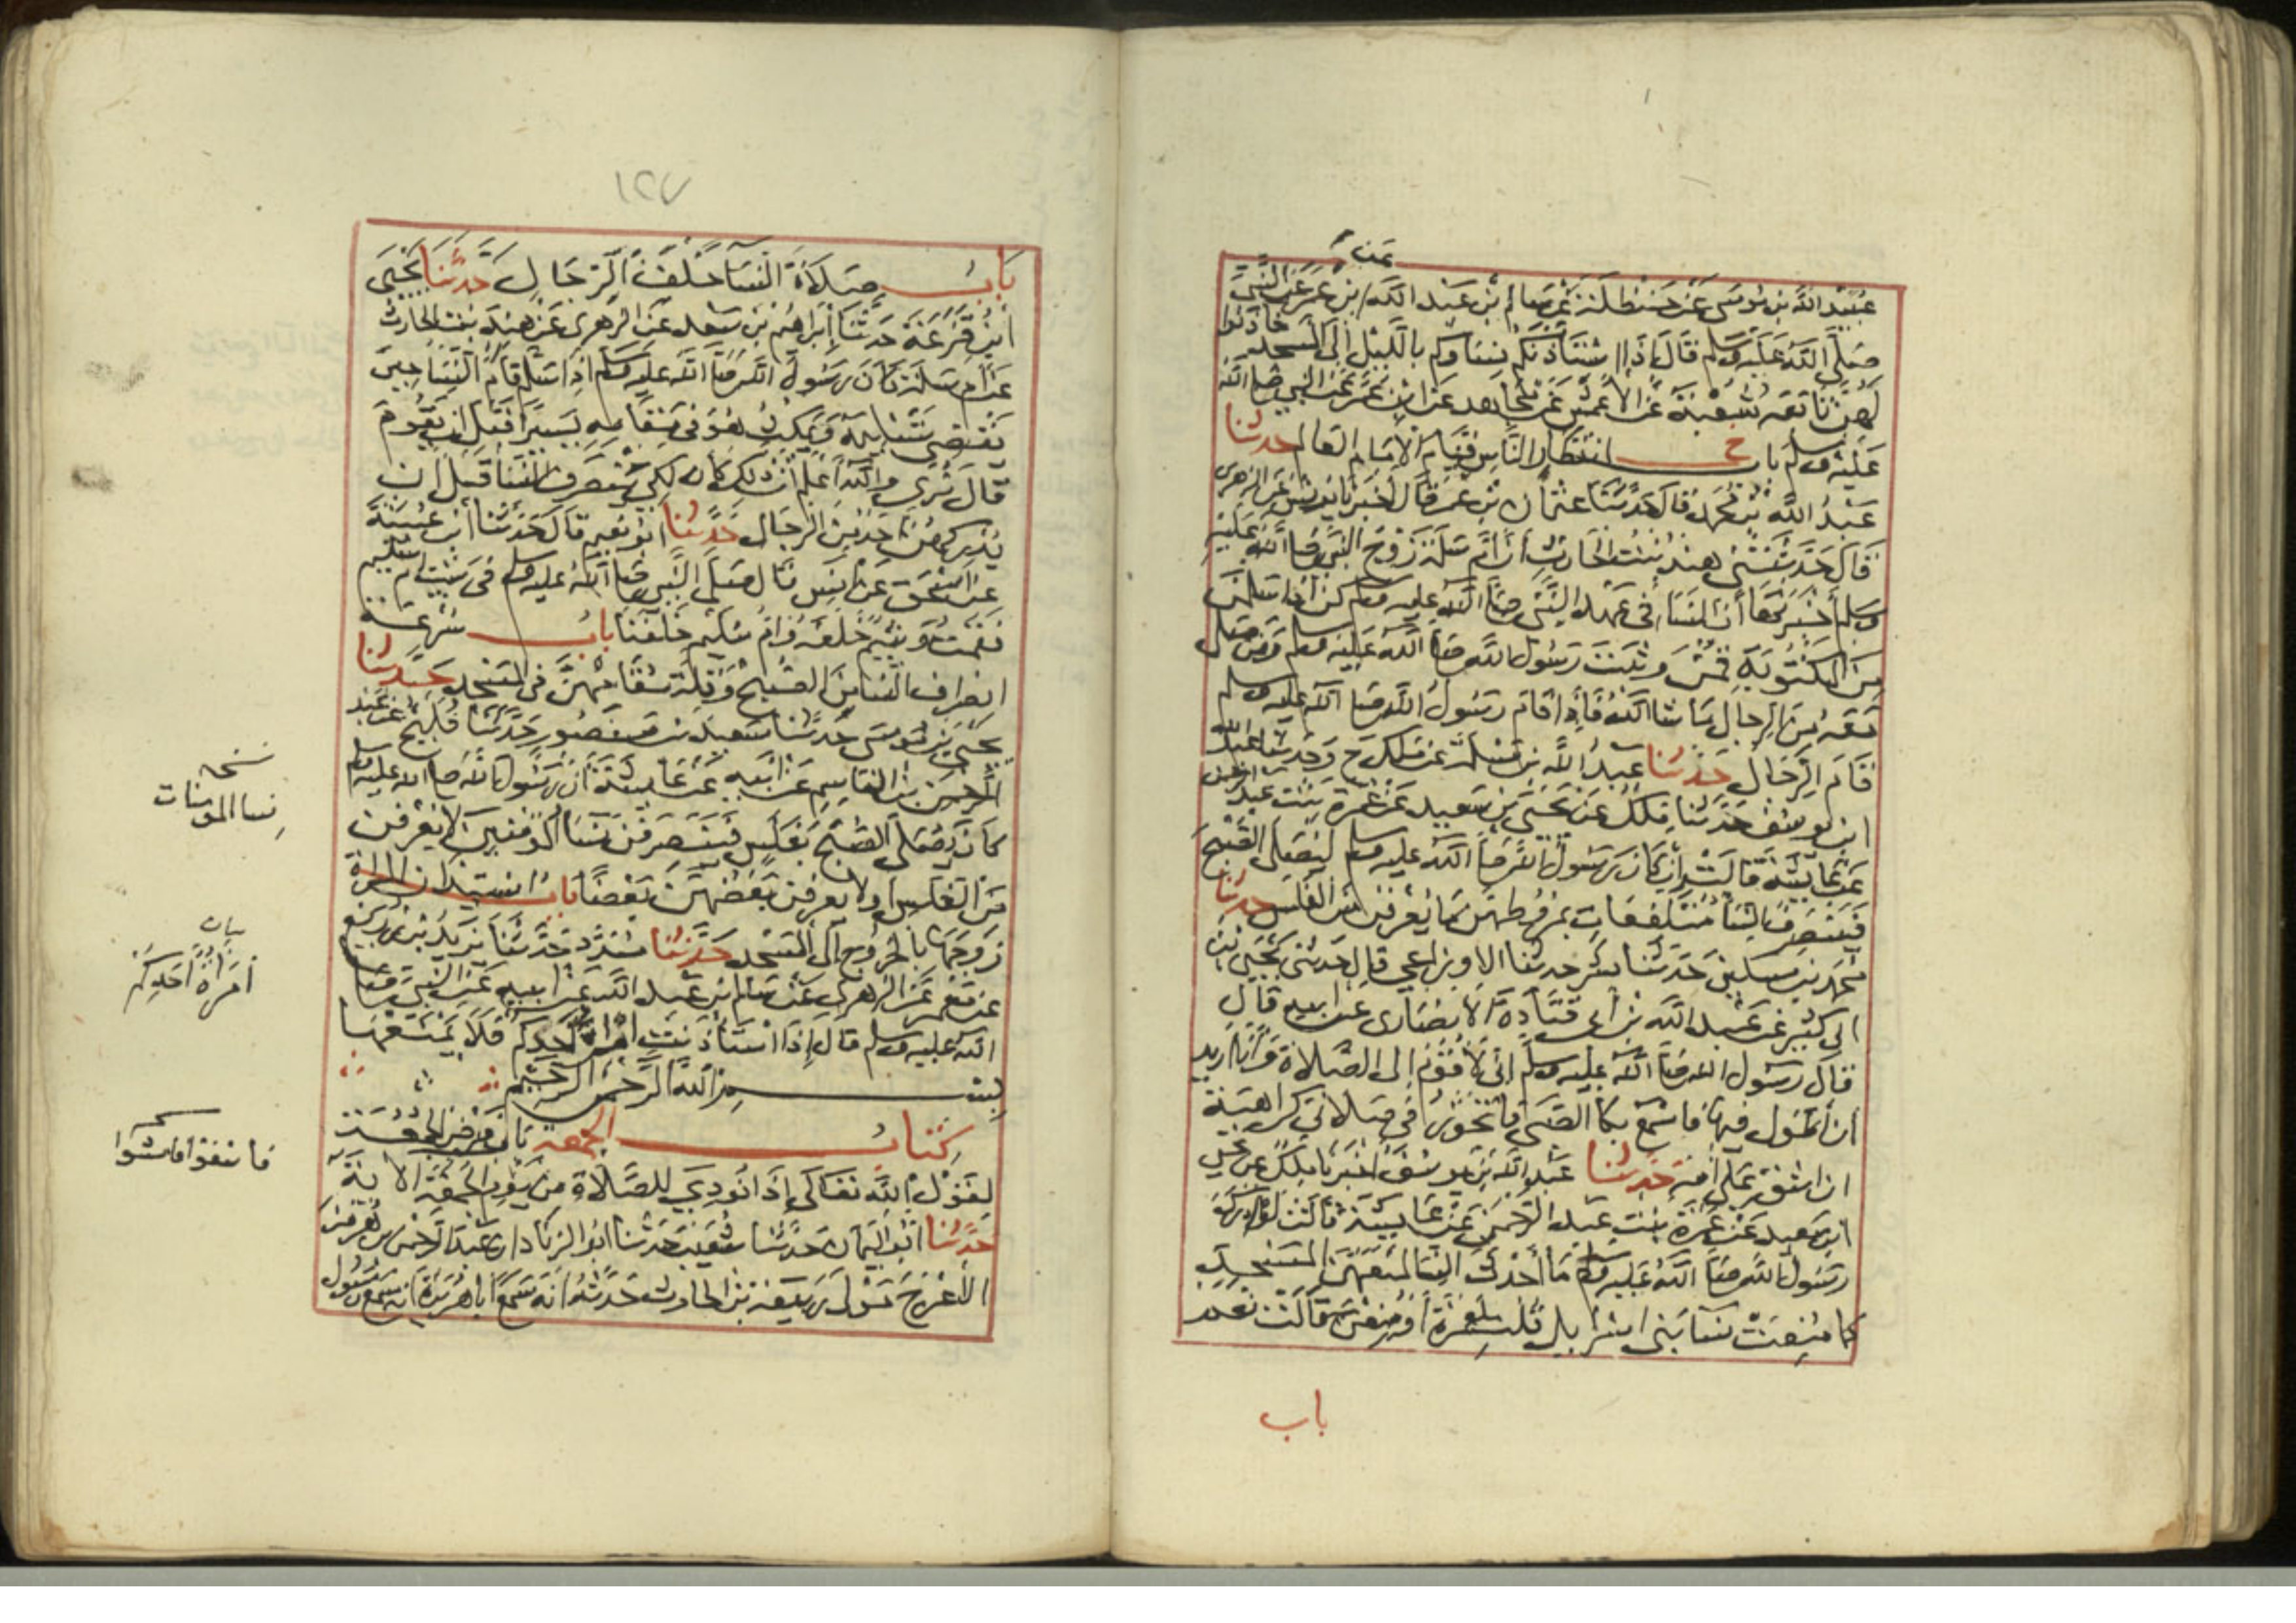 عن
عبيد الله بن موسى عن حنظلة عن سالم بن عبد الله بن عمر عن النبي
صلى الله عليه وسلم قال إذا استأذنكم نساوكم بالليل إلى المسجد فأذنوا
لهن تابعه شعبة عن الأعمش عن مجاهد عن ابن عمر عن النبي صلى الله
عليه وسلم باب انتظار الناس قيام الإمام العالم حدثنا
عبد الله بن محمد قال حدثنا عثمان بن عمر قال أخبرنا يونس عن الزهري
قال حدثتني هند بنت الحارث أن أم سلمة زوج النبي صلى الله عليه
وسلم أخبرتها أن النسا في عهد النبي صلى الله عليه وسلم كن إذا سلمن
من المكتوبة قمن وثبت رسول الله صلى الله عليه وسلم ومن صلى
معه من الرجال ما شا الله فإذا قام رسول الله صلى الله عليه وسلم
قام الرجال حدثنا عبد الله بن مسلمة عن ملك ح وحدثنا عبد الله
ابن يوسف حدثنا ملك عن يحيى بن سعيد عن عمرة بنت عبد الرحمن
عن عايشة قالت إن كان رسول الله صلى الله عليه وسلم ليصلي الصبح
فينصرف النسا متلفعات بمروطهن ما يعرفن من الغلس حدثنا
محمد بن مسكين حدثنا بشر حدثنا الاوزاعي قال حدثني يحيى بن
ابي كثير عن عبد الله بن أبي قتادة الأنصاري عن ابيه قال
قال رسول الله صلى الله عليه وسلم إني لأقوم إلى الصلاة وأنا اريد
أن أطول فيها فاسمع بكا الصبي فاتجوز في صلاتي كراهية
ان اشق على أمه حدثنا عبد الله بن يوسف أخبرنا ملك عن يحيى
ابن سعيد عن عمرة بنت عبد الرحمن عن عايشة قالت لو أدرك
رسول الله صلى الله عليه وسلم ما أحدث النسا لمنعهن المسجد
كما منعت نسا بني اسرايل قلت لعمرة أو منعن قالت نعم
باب
١٢٧
باب صلاة النسا خلف الرجال حدثنا يحيى
ابن قزعة حدثنا إبراهيم بن سعد عن الزهري عن هند بنت الحارث
عن ام سلمة كان رسول الله صلى الله عليه وسلم إذا سلم قام النسا حين
يقضي تسليمه ويمكث هو في مقامه يسيرا قبل ان يقوم
قال نرى والله أعلم أن ذلك كان لكي ينصرف النسا قبل ان
يدركهن احد من الرجال حدثنا ابو نعيم قال حدثنا ابن عيينة
عن اسحق عن انس قال صلى النبي صلى الله عليه وسلم في بيت ام سليم
فقمت ويتيم خلفه وام سليم خلفنا باب سرعة
انصراف النسا من الصبح وقلة مقامهن في المسجد حدثنا
يحيى بن موسى حدثنا سعيد بن منصور حدثنا فليح عن عبد
الرحمن بن القاسم عن ابيه عن عايشة أن رسول الله صلى الله عليه وسلم
كان يصلي الصبح بغلس فينصرفن نسا المومنين لا يعرفن
من الغلس او لا يعرفن بعضهن بعضا باب استيذان المراة
زوجها بالخروج إلى المسجد حدثنا مسدد حدثنا يزيد بن زريع
عن معمر عن الزهري عن سالم بن عبد الله عن ابيه عن النبي صلى
الله عليه وسلم قال إذا استأذنت امراة أحدكم فلا يمنعها
بسم الله الرحمن الرحيم
كتاب الجمعة باب فرض الجمعة
لقول الله تعالى إذا نودي للصلاة من يوم الجمعة الاية
حدثنا ابو اليمان حدثنا شعيب حدثنا ابو الزناد ان عبد الرحمن بن هرمز
الأعرج مولى ربيعة بن الحارث حدثه انه سمع أبا هريرة انه سمع رسول
نسخه
نسا المومنات
بيان
امراة أحدكم
فاسعوا فامشوا